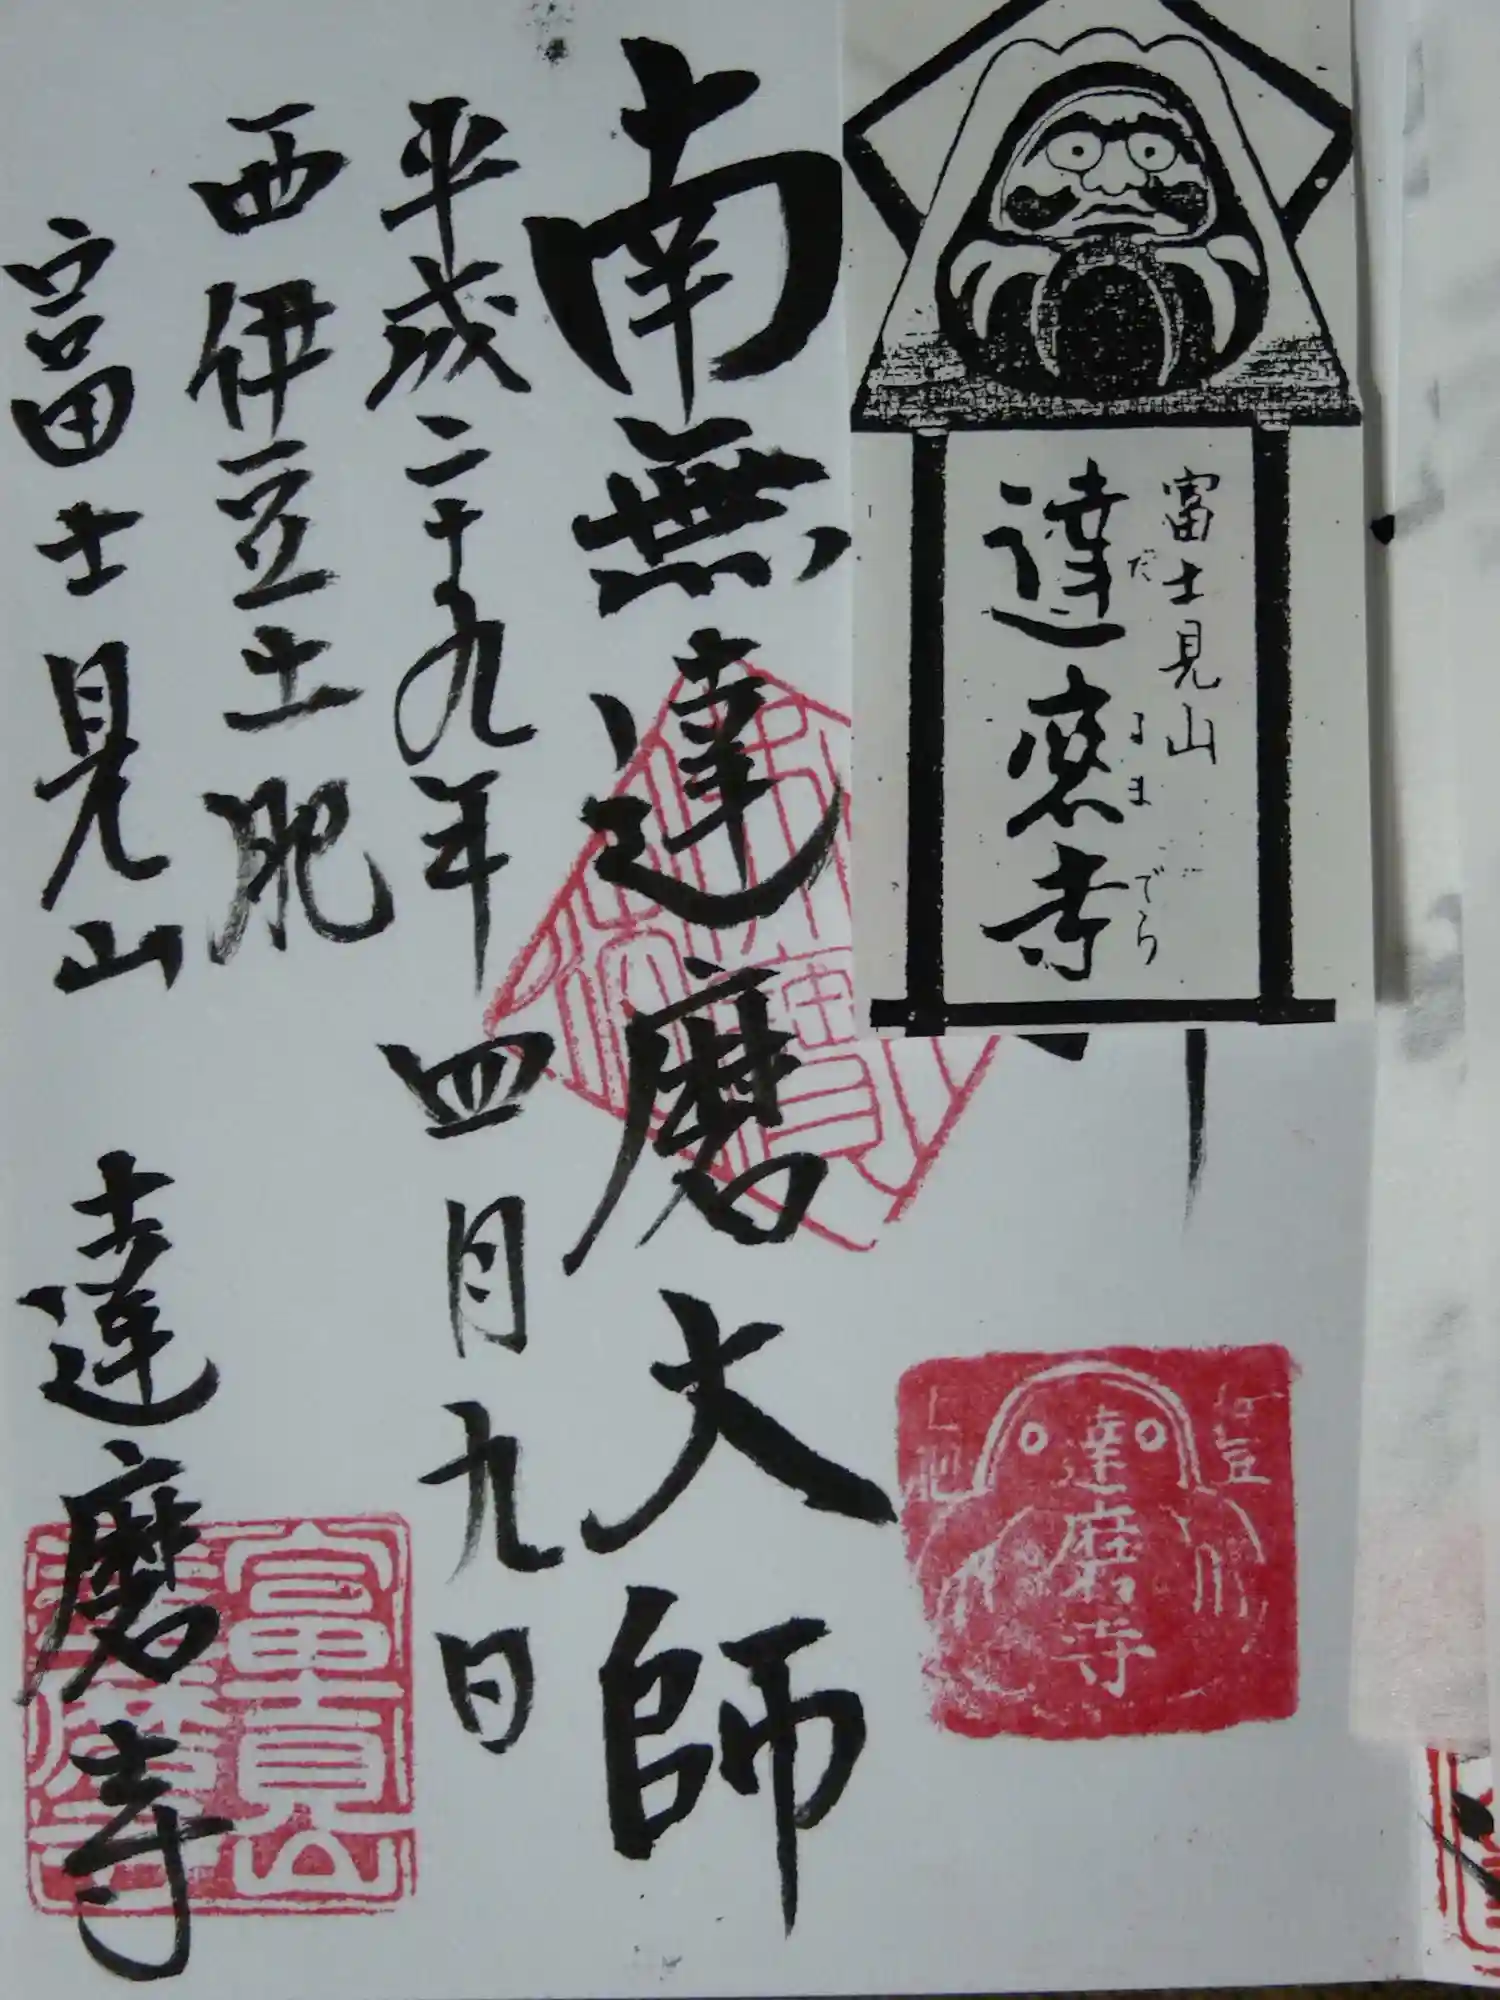 富士見山
達磨寺
だるまでら
南無達磨大師
平成二十九年四月九日
西伊豆土肥
富士見山 達磨寺
達磨寺